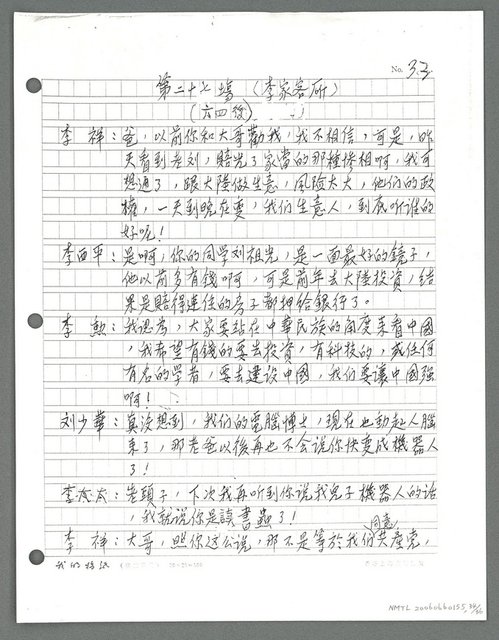 No. 33
第二十七場（李家客所）
（六四後）
李 祥：爸，以前你和大哥勸我，我不相信，可是，昨
天看到老刘，賠光了家當的那種慘相啊，我可
想通了，跟大陸做生意，風险太大，他们的政
權，一天到晚在变，我们生意人，到底听谁的
好呢！
李百平：是啊，你的同学刘祖光，是一面最好的镜子，
他以前多有錢啊，可是前年去大陸投資，结
果是賠得連住的房子都押给銀行了。
李 勲：我認為，大家要站在中華民族的角度来看中國
，我希望有錢的要去投資，有科技的，或任何
有名的学者，要去建设中國，我们要讓中國强
啊！
刘少華：真沒想到，我们的電腦博士，現在也動起人腦
来了，那老爸以後再也不会说你快变成機器人
了！
李太太：老頭子，下次我再听到你说我兒子機器人的话
，我就说你是讀書蟲了！
同意
李 祥：大哥，照你这么说，那不是等於我们共產党，
我的稿纸
NMYL 20060660155